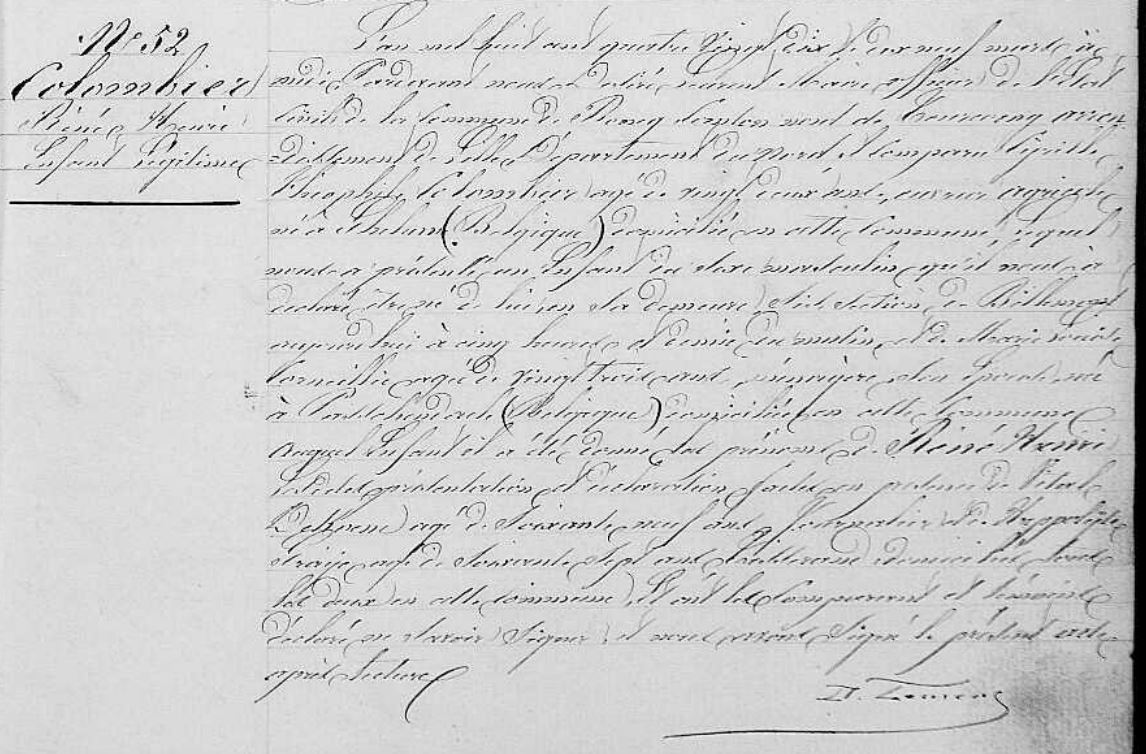 N° 52
Colombier
Réné Henri
Enfant Légitime
L'an mil huit cent quatre vingt dix le dix neuf mars à
midi Pardevant nous Désiré Maire officier de l'état
Civil de la Commune de Roncq Canton nord de Tourcoing arron
dissement de Lille Département du nord est comparu Cyrille
Théophile Colombier agé de vingt deux ans, ouvrier agricole
né à Ghelune (Belgique) domicilié en cette Commune, lequel
nous a présenté un Enfant du sexe masculin qu'il nous a
déclaré être né de lui en sa demeure, sise section de
aujourd'hui à cinq heures et demie du matin, et de Marie
Corneillie agée de vingt trois ans, ménagère, son épouse, née
à (Belgique) domiciliée en cette Commune
auquel Enfant il a été donné les prénoms de Réné Henri
Lesdites présentation et déclaration faites en présence de Vital
agé de soixante neuf ans, Journalier et de Hyppolyte
agé de soixante sept ans domiciliés tous
les deux en cette commune, Et ont les Comparant et témoins
déclaré ne savoir signer, et nous avons signé le présent acte
après lecture